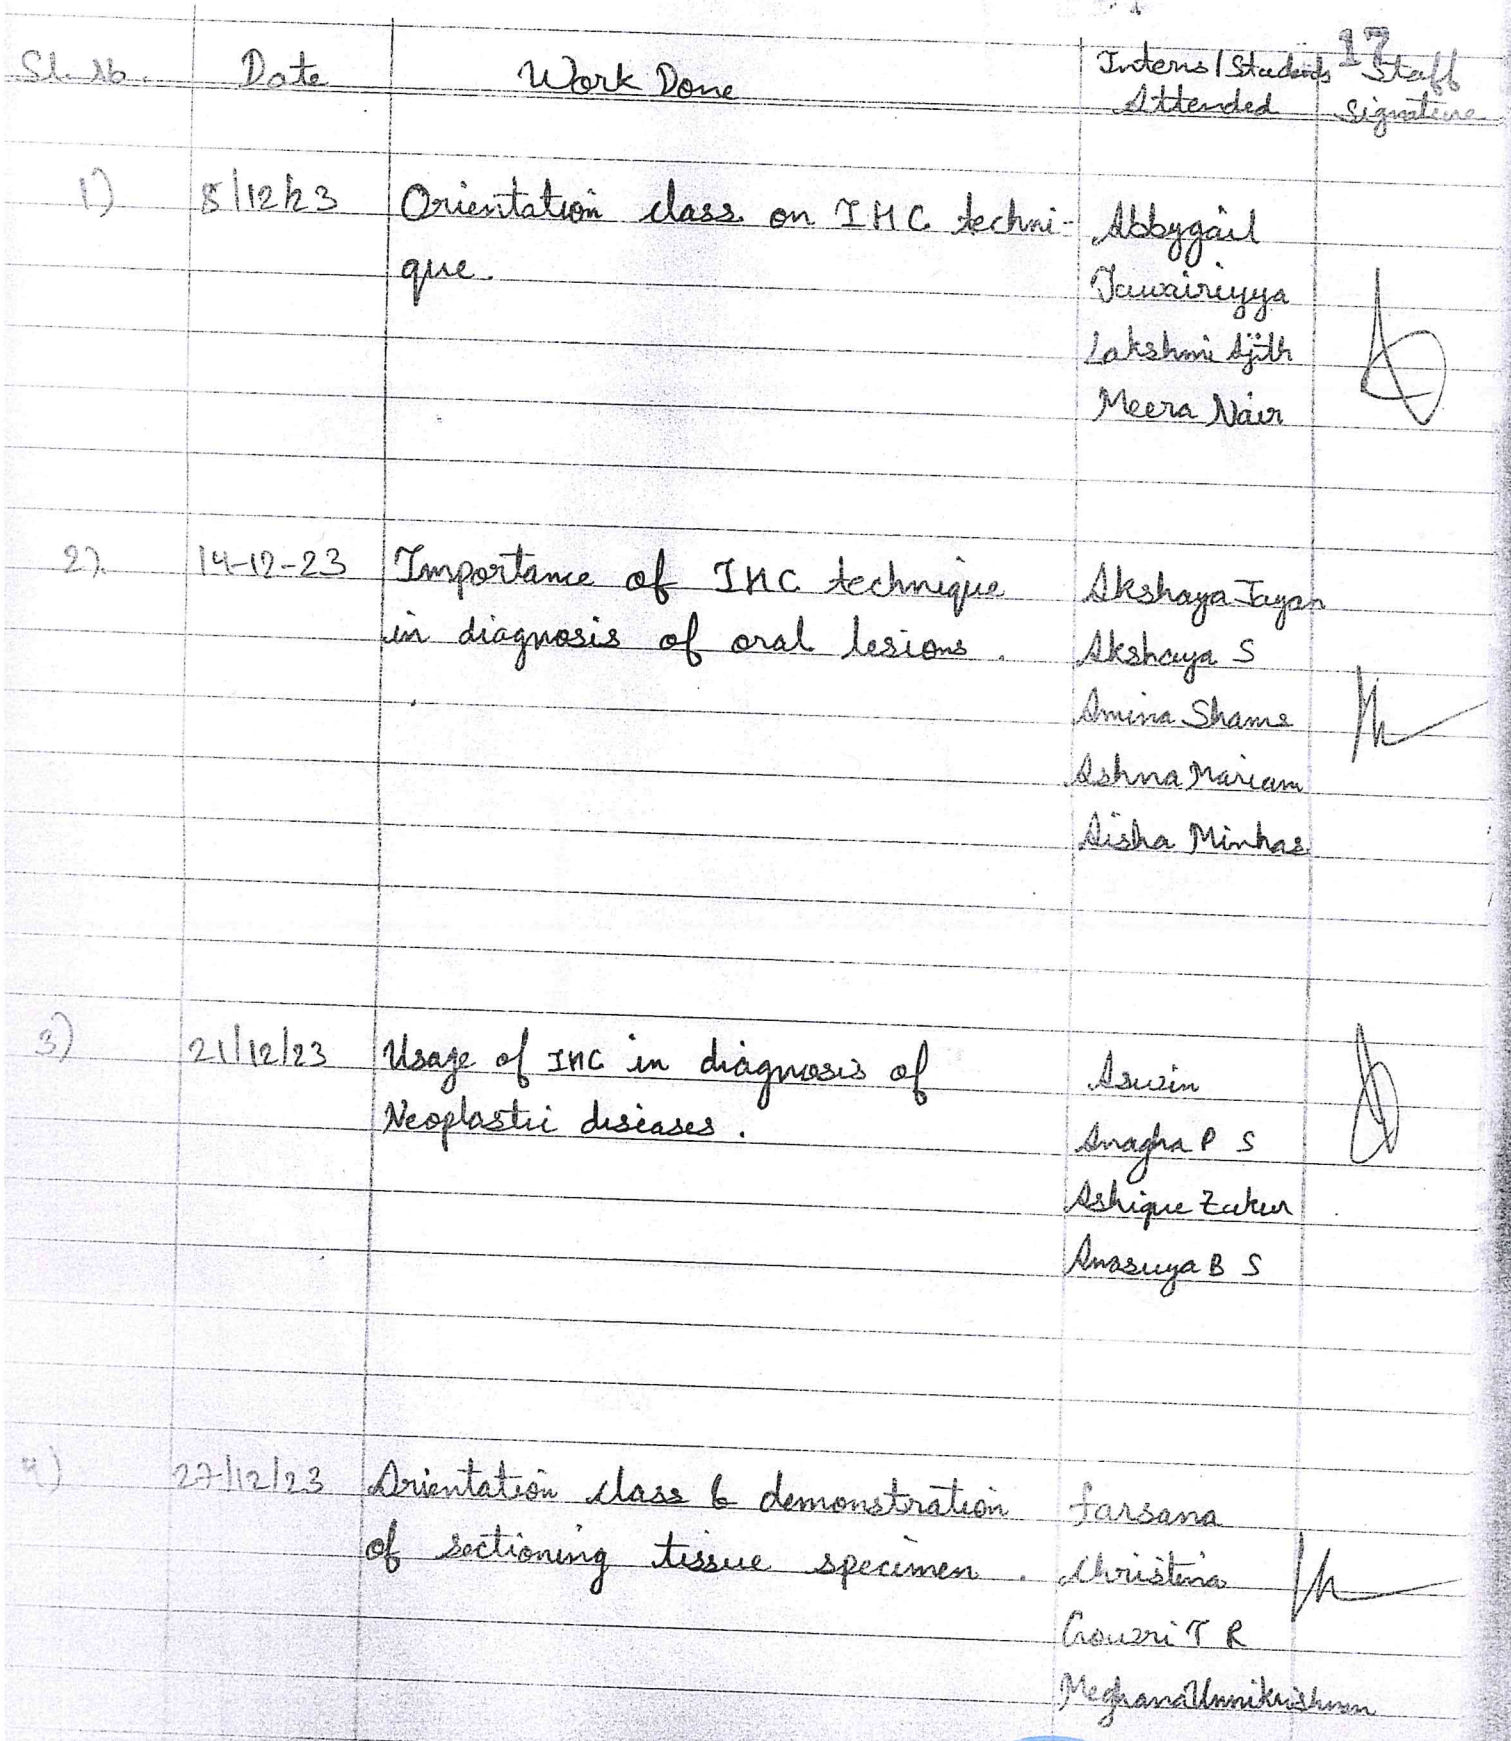 17
Sl. No. Date Work Done Interns/Students Staff
Attended Signature
1) 8/12/23 Orientation class on IHC techni- Abbygail
que. Jawairiyya
Lakshmi Ajith
Meera Nair
2). 14-12-23 Importance of IHC technique Akshaya Jayan
in diagnosis of oral lesions. Akshaya S
Amina Shams
Ashna Mariam
Aisha Minhas
3) 21/12/23 Usage of IHC in diagnosis of Aswin
Neoplastic diseases. Anagha P S
Ashique Zakur
Anasuya B S
4) 27/12/23 Orientation class & demonstration Farsana
of sectioning tissue specimen. Christina
Gowri T R
Meghana Unnikrishnan